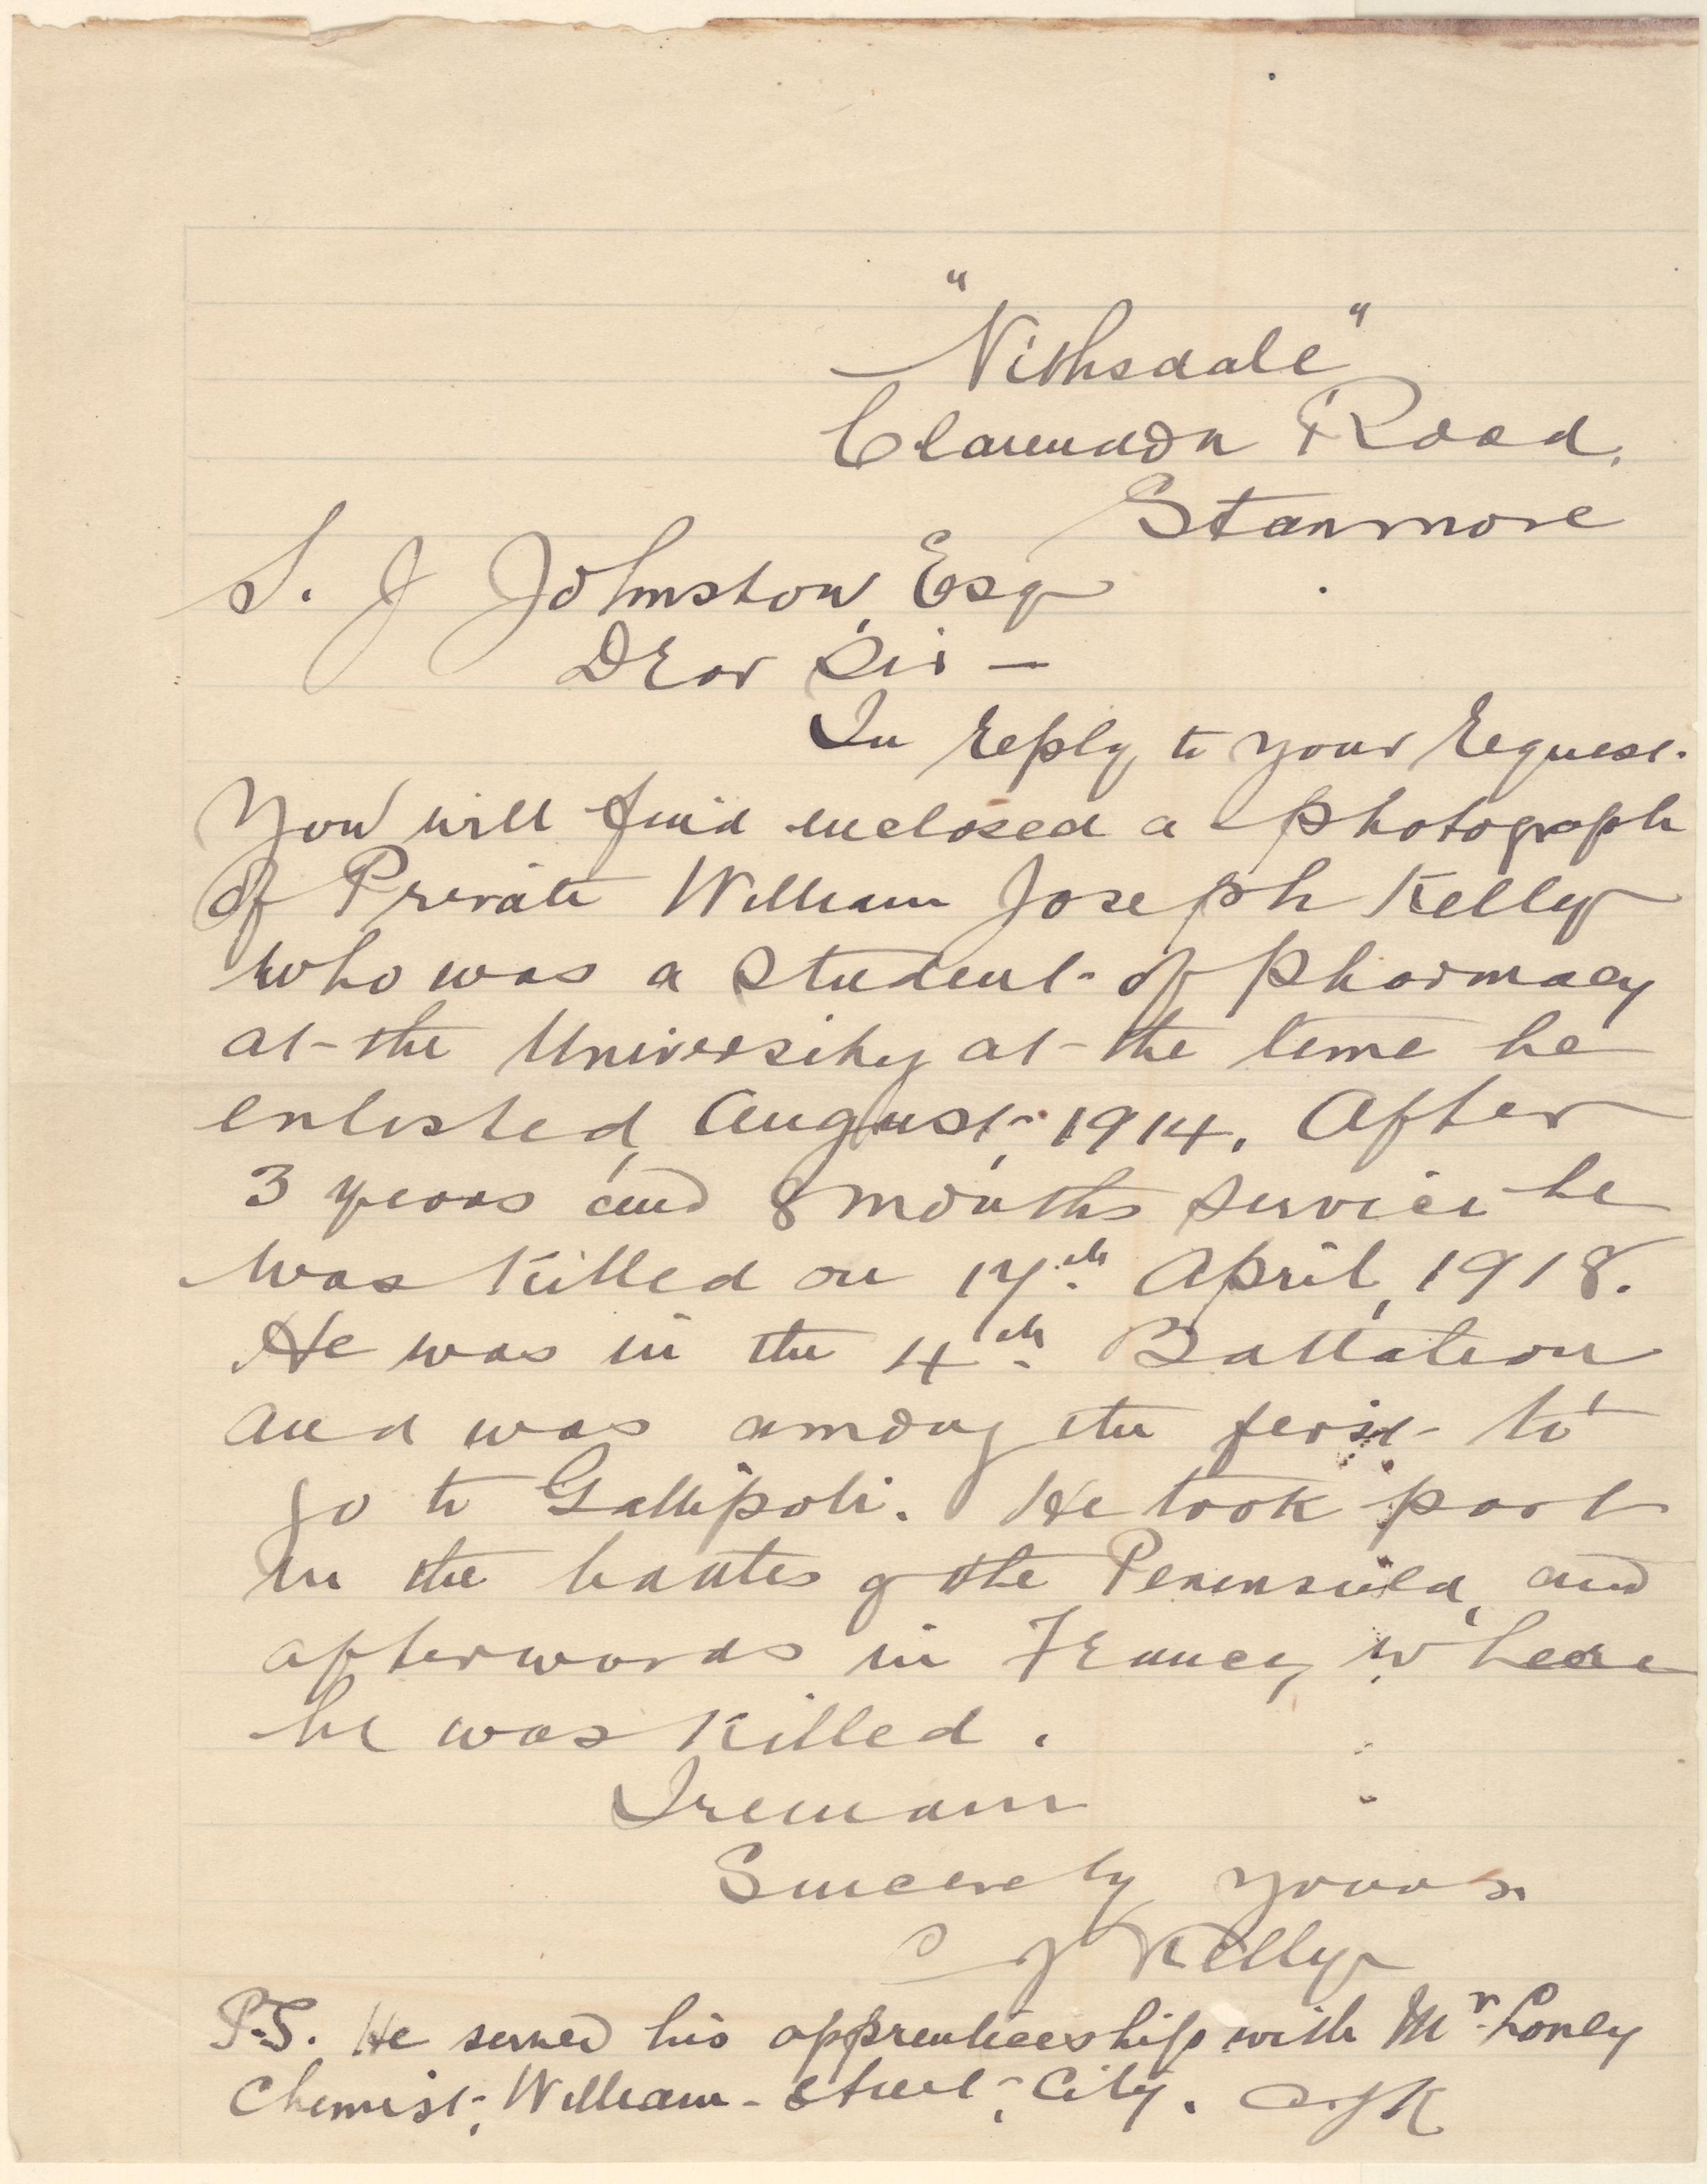 "Nithsdale"
Clarendon Road,
Stanmore
S. J Johnston, Esq
Dear Sir —
In reply to your request
you will find enclosed a photograph
of Private William Joseph Kelly
who was a student of pharmacy
at the University at the time he
enlisted, August, 1914. After
3 years and 8 months service he
was killed on 17th April, 1918.
He was in the 4th Battalion
and was among the first to
go to Gallipoli. He took part
in the battles of the Peninsula, and
afterwards in France, where
he was killed.
I remain
Sincerely yours.
J Kelly
P.S. He served his apprenticeship with Mr Loney
Chemist, William-street, City. JK